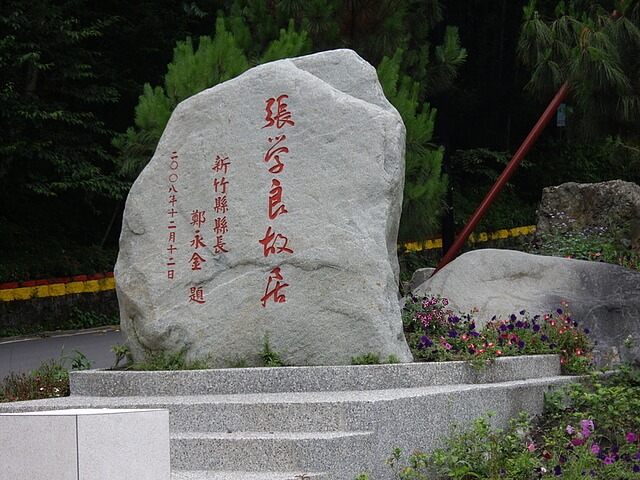 張学良故居
新竹縣縣長
鄭永金 題
二〇〇八年十二月十二日